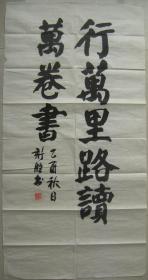 行萬里路讀
萬卷書
乙酉秋日